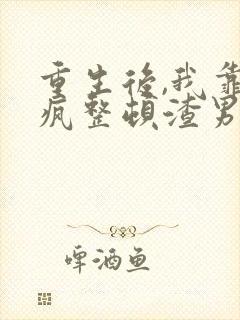 重生後,我靠
瘋整頓渣男
啤酒魚